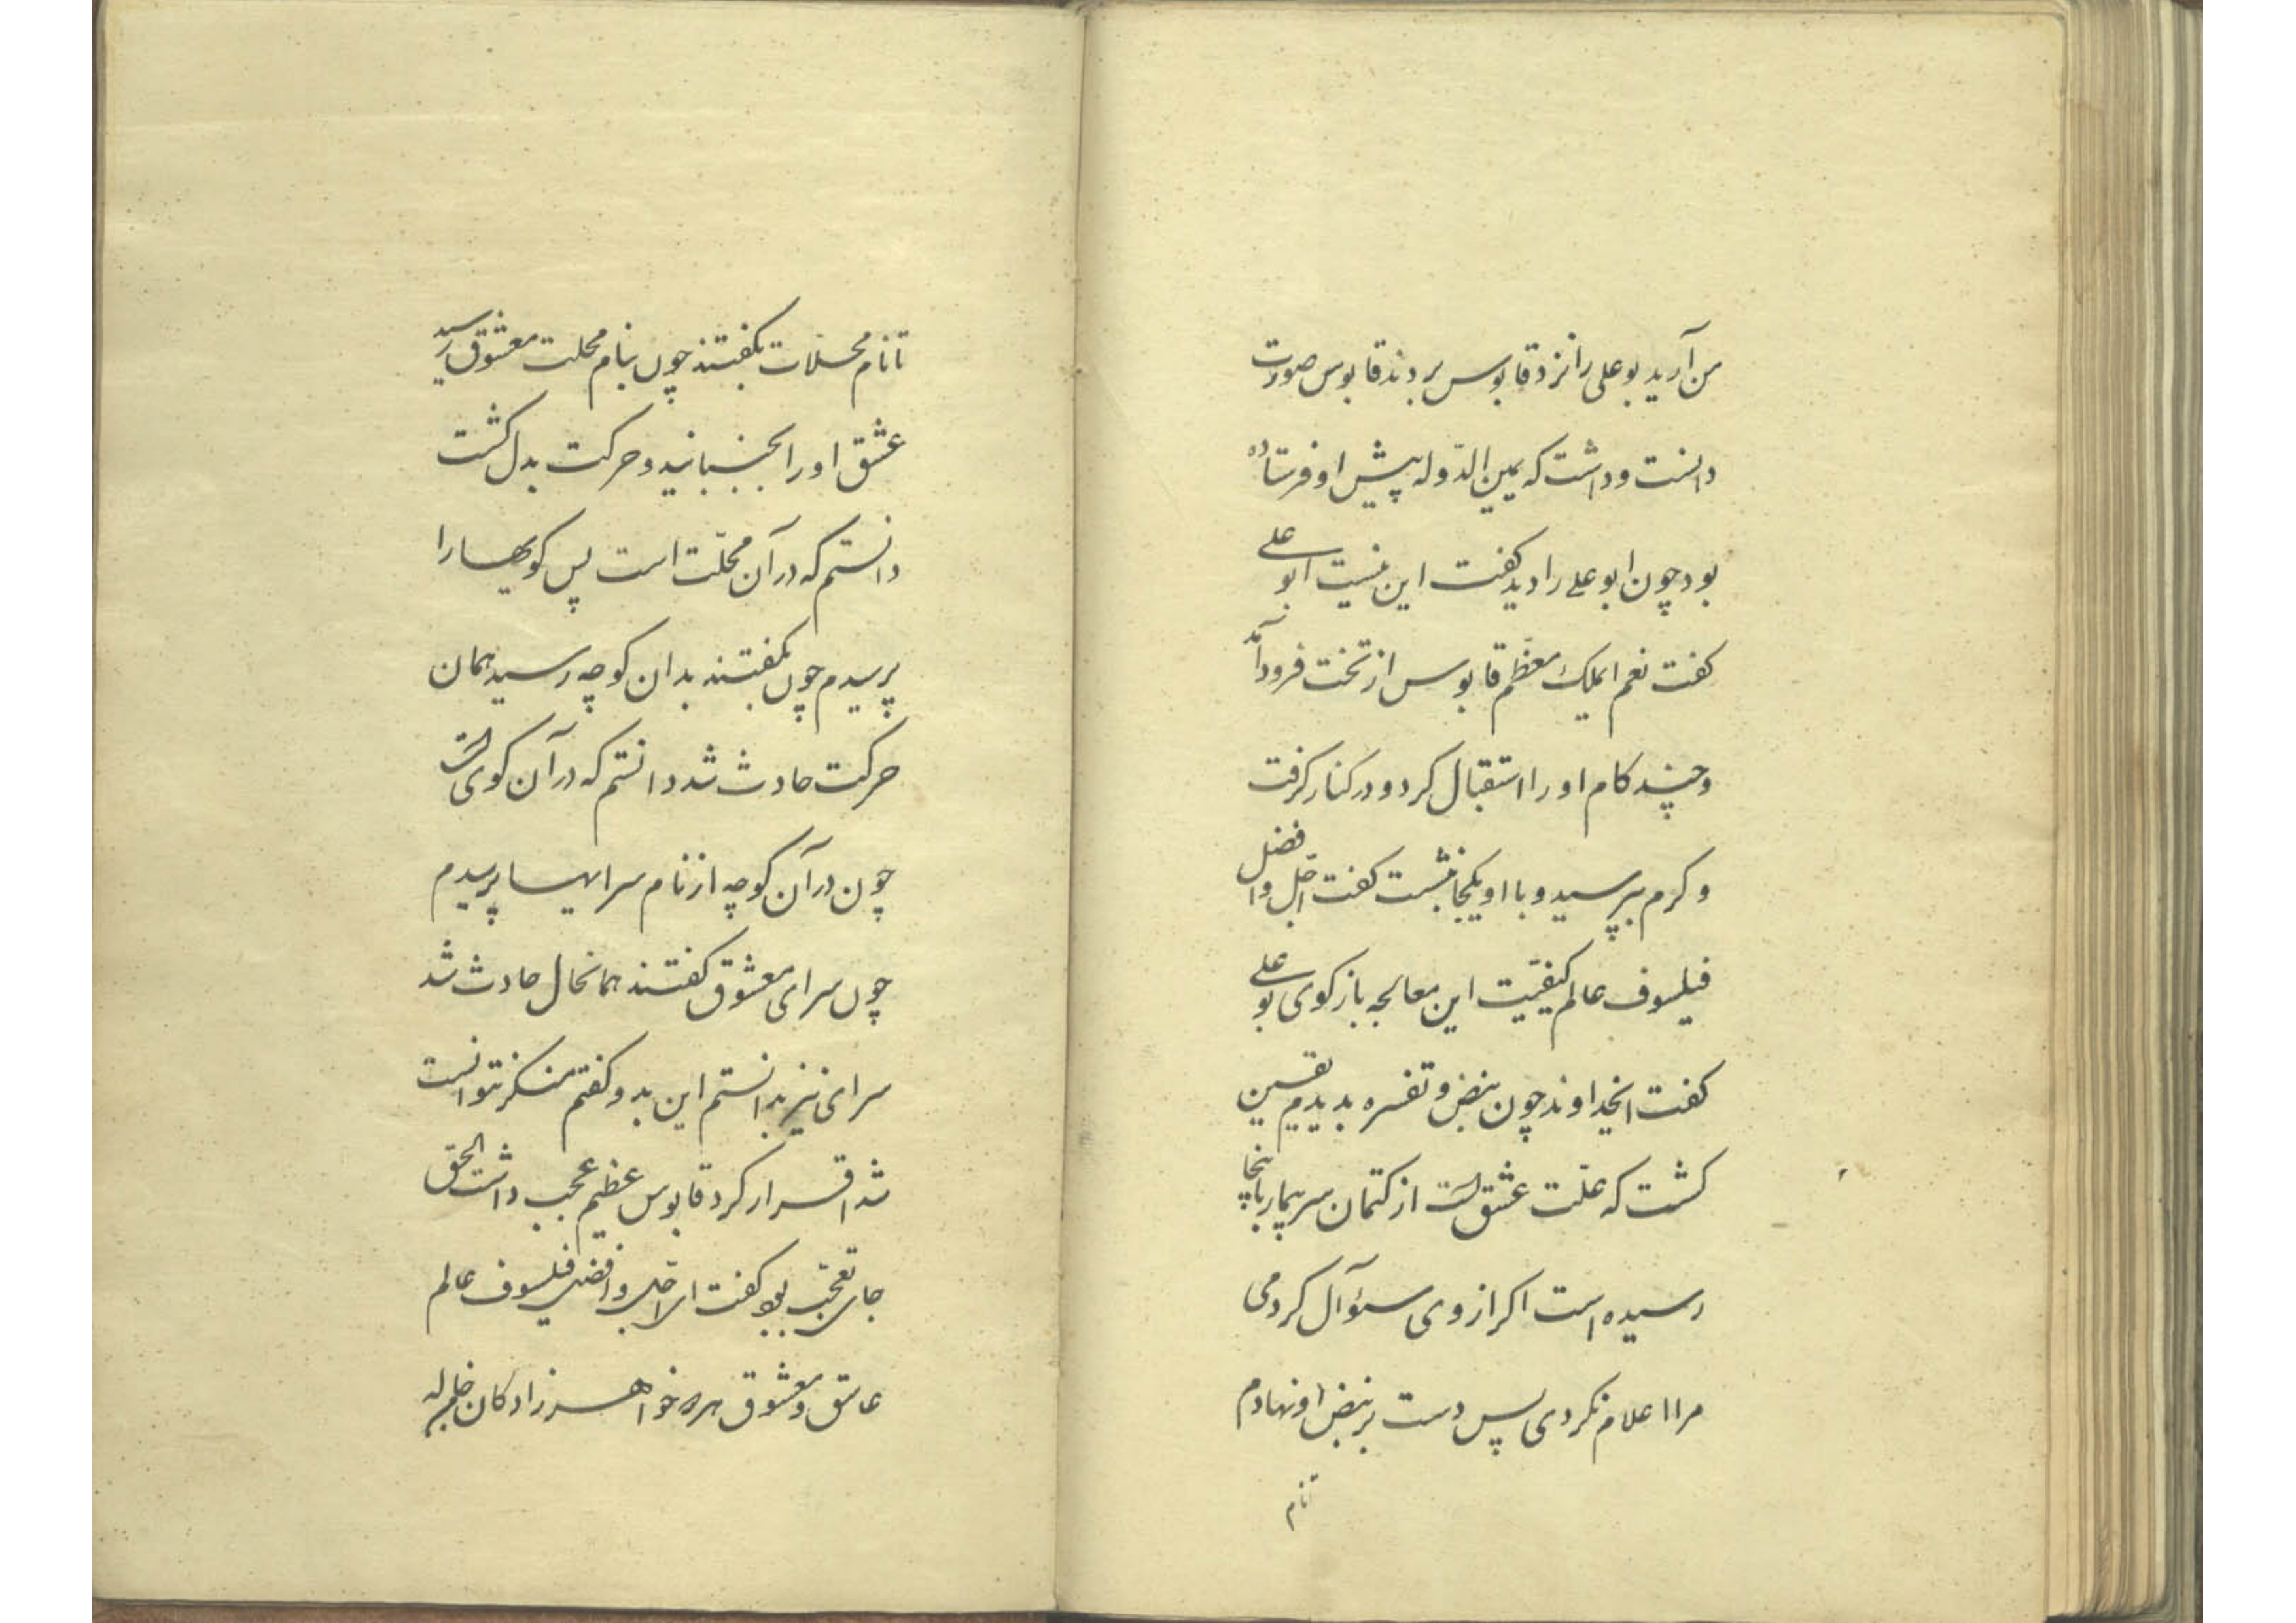 من آرید بوعلی را نزد قابوس بردند قابوس صورت
دانست و داشت که یمین الدّوله پیش او فرستاده
بود چون ابوعلی را دید کفت این نیست ابوعلی
کفت نعم ایملک معظّم قابوس از تخت فرود آمد
و چند کام او را استقبال کرد و در کنار کرفت
و کرم بپرسید و با او یکجا بنشست کفت اجّل و افضل
فیلسوف عالم کیفیّت این معالجه باز کوی بوعلی
کفت ایخداوند چون نبض و تفسره بدیدم یقین
کشت که علّت عشق است از کتمان سر بیمار باینجا
رسیده است اکر از وی سئوآل کردمی
مرا اعلام نکردی پس دست بر نبض او نهادم
تانام
تا نام محلات بکفتند چون بنام محلت معشوق رسید
عشق او را بجنبانید و حرکت بدل کشت
دانستم که در آن محلّت است پس کویها را
پرسیدم چون بکفتند بدان کوچه رسید همان
حرکت حادث شد دانستم که در آن کوی است
چون در آن کوچه از نام سرایها پرسیدم
چون سرای معشوق کفتند همانحال حادث شد
سرای نیز بدانستم این بدو کفتم منکر نتوانست
شد اقرار کرد قابوس عظیم عجب داشت الحق
جای تعجّب بود کفت ای اجّل و افضل فیلسوف عالم
عاشق و معشوق هر دو خواهرزادکان